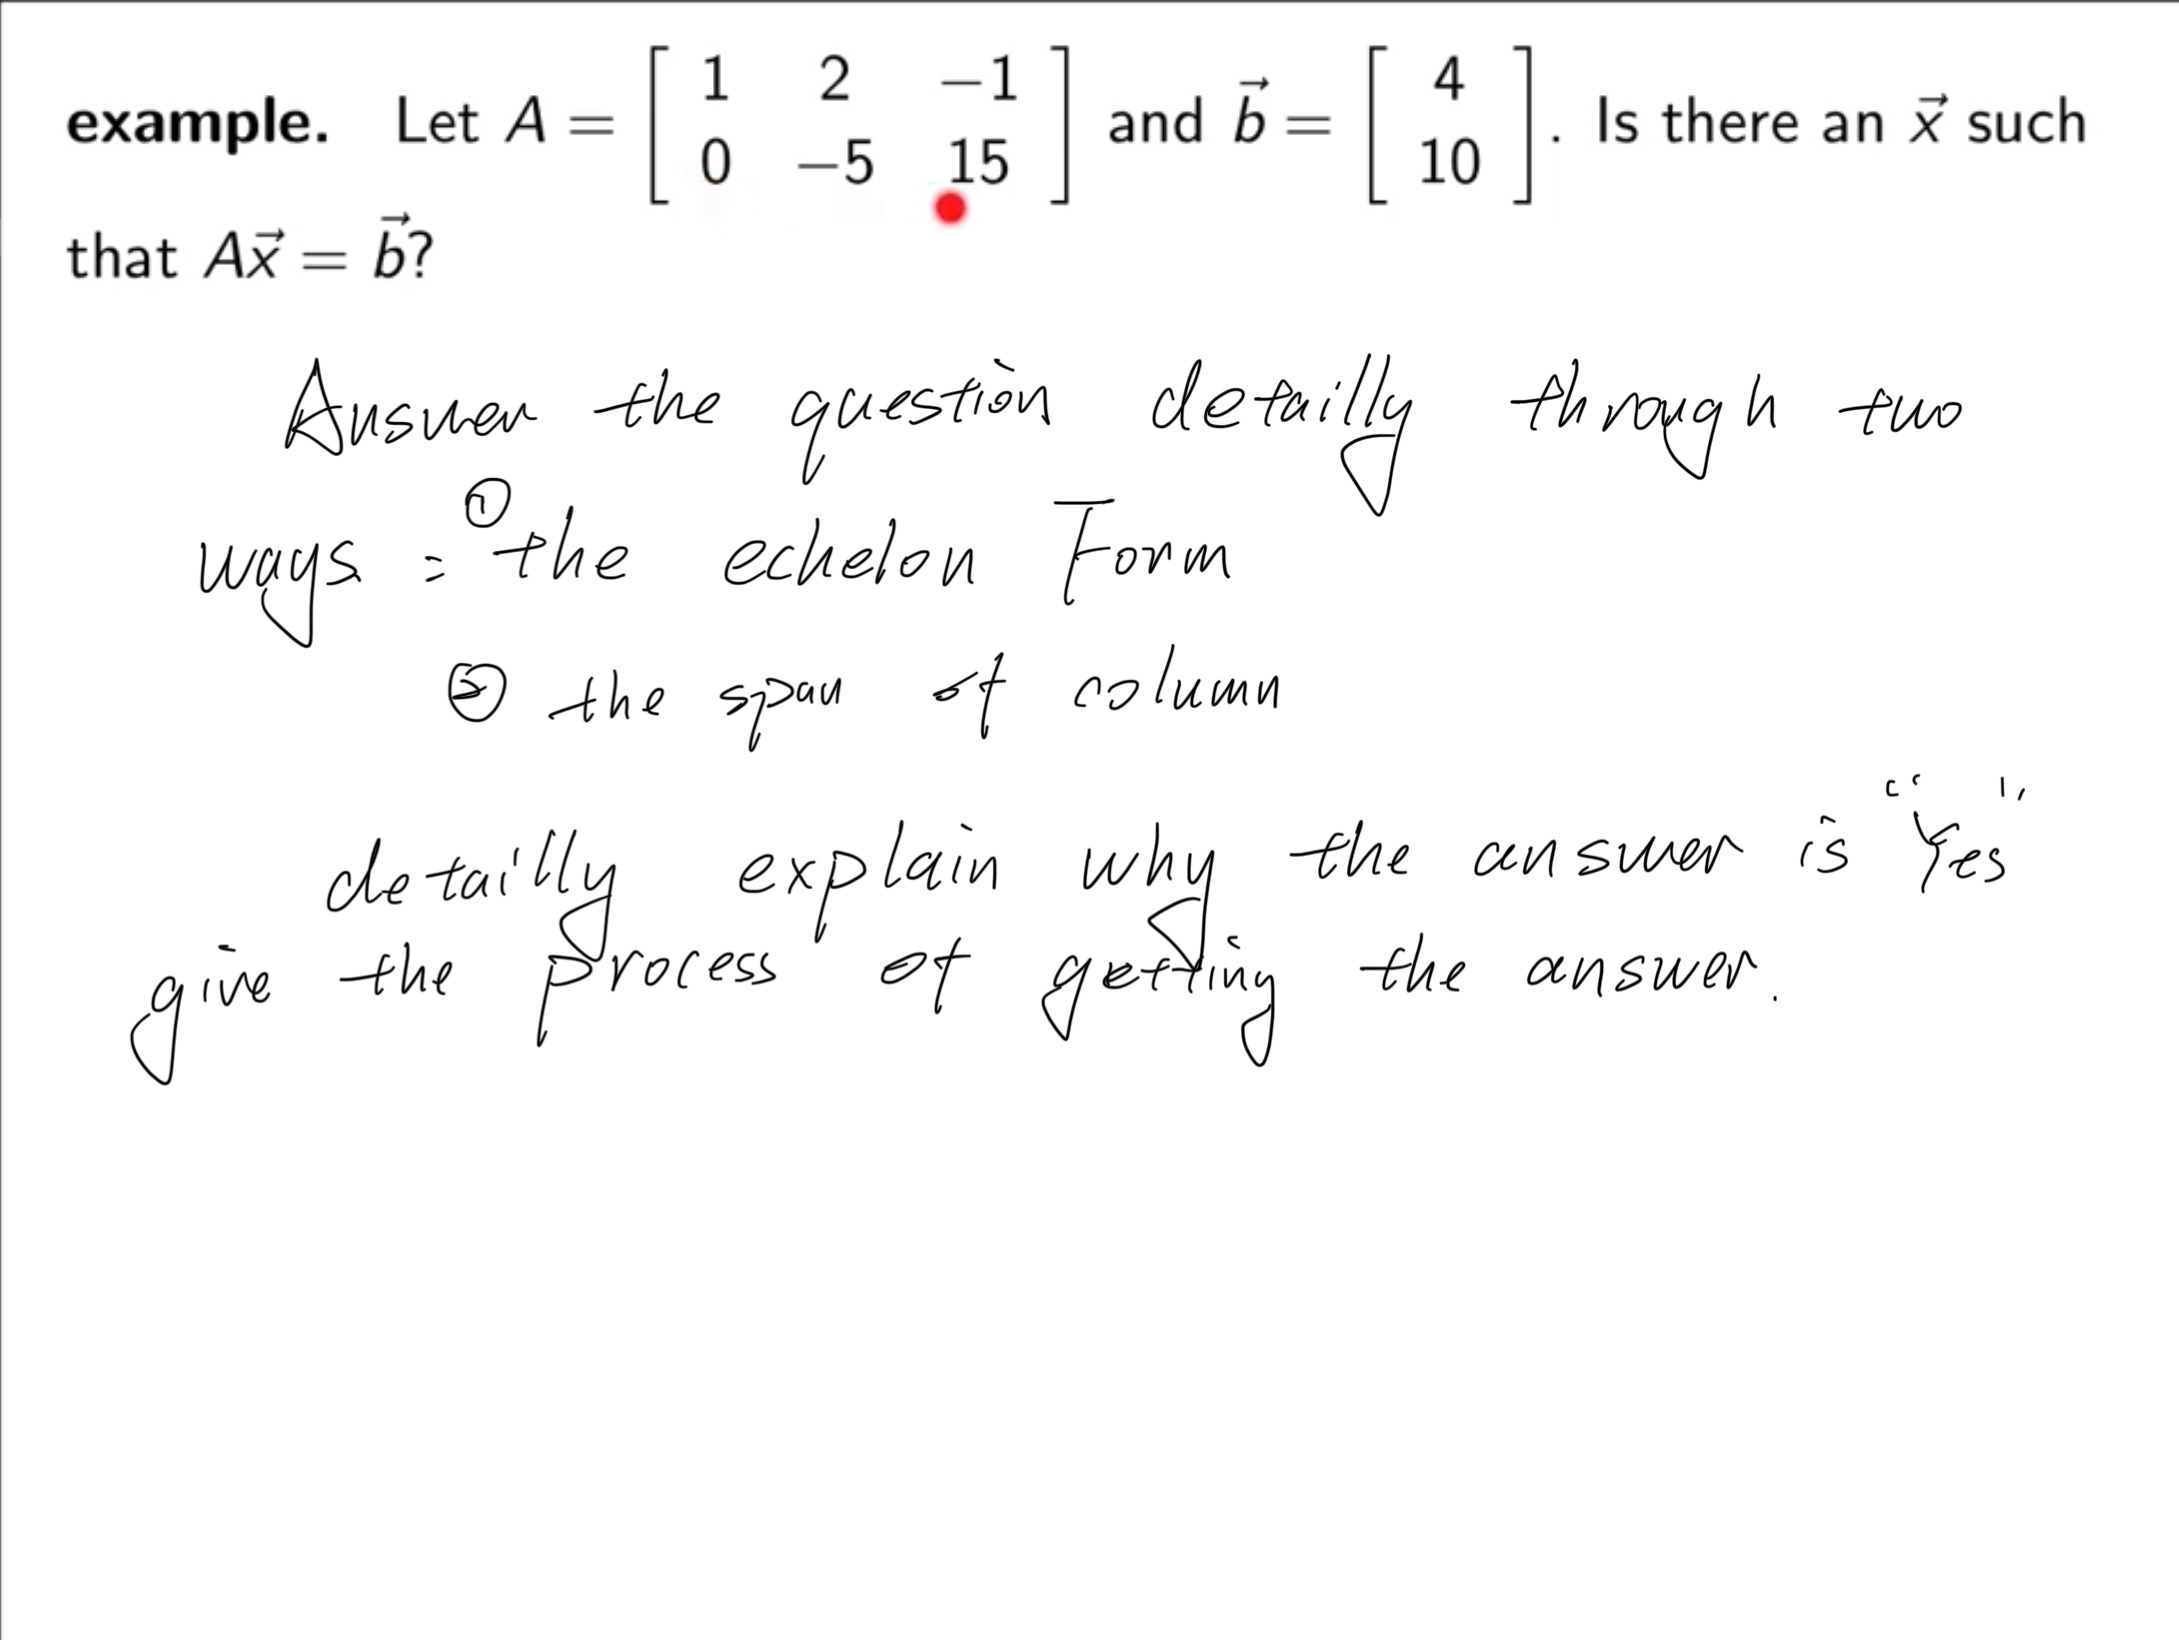 example. Let A = [ 1 2 −1 0 −5 15 ] and b⃗ = [ 4 10 ]. Is there an x⃗ such
that Ax⃗ = b⃗?
Answer the question detailly through two
ways : ① the echelon Form
② the span of column
detailly explain why the answer is "Yes"
give the process of getting the answer.